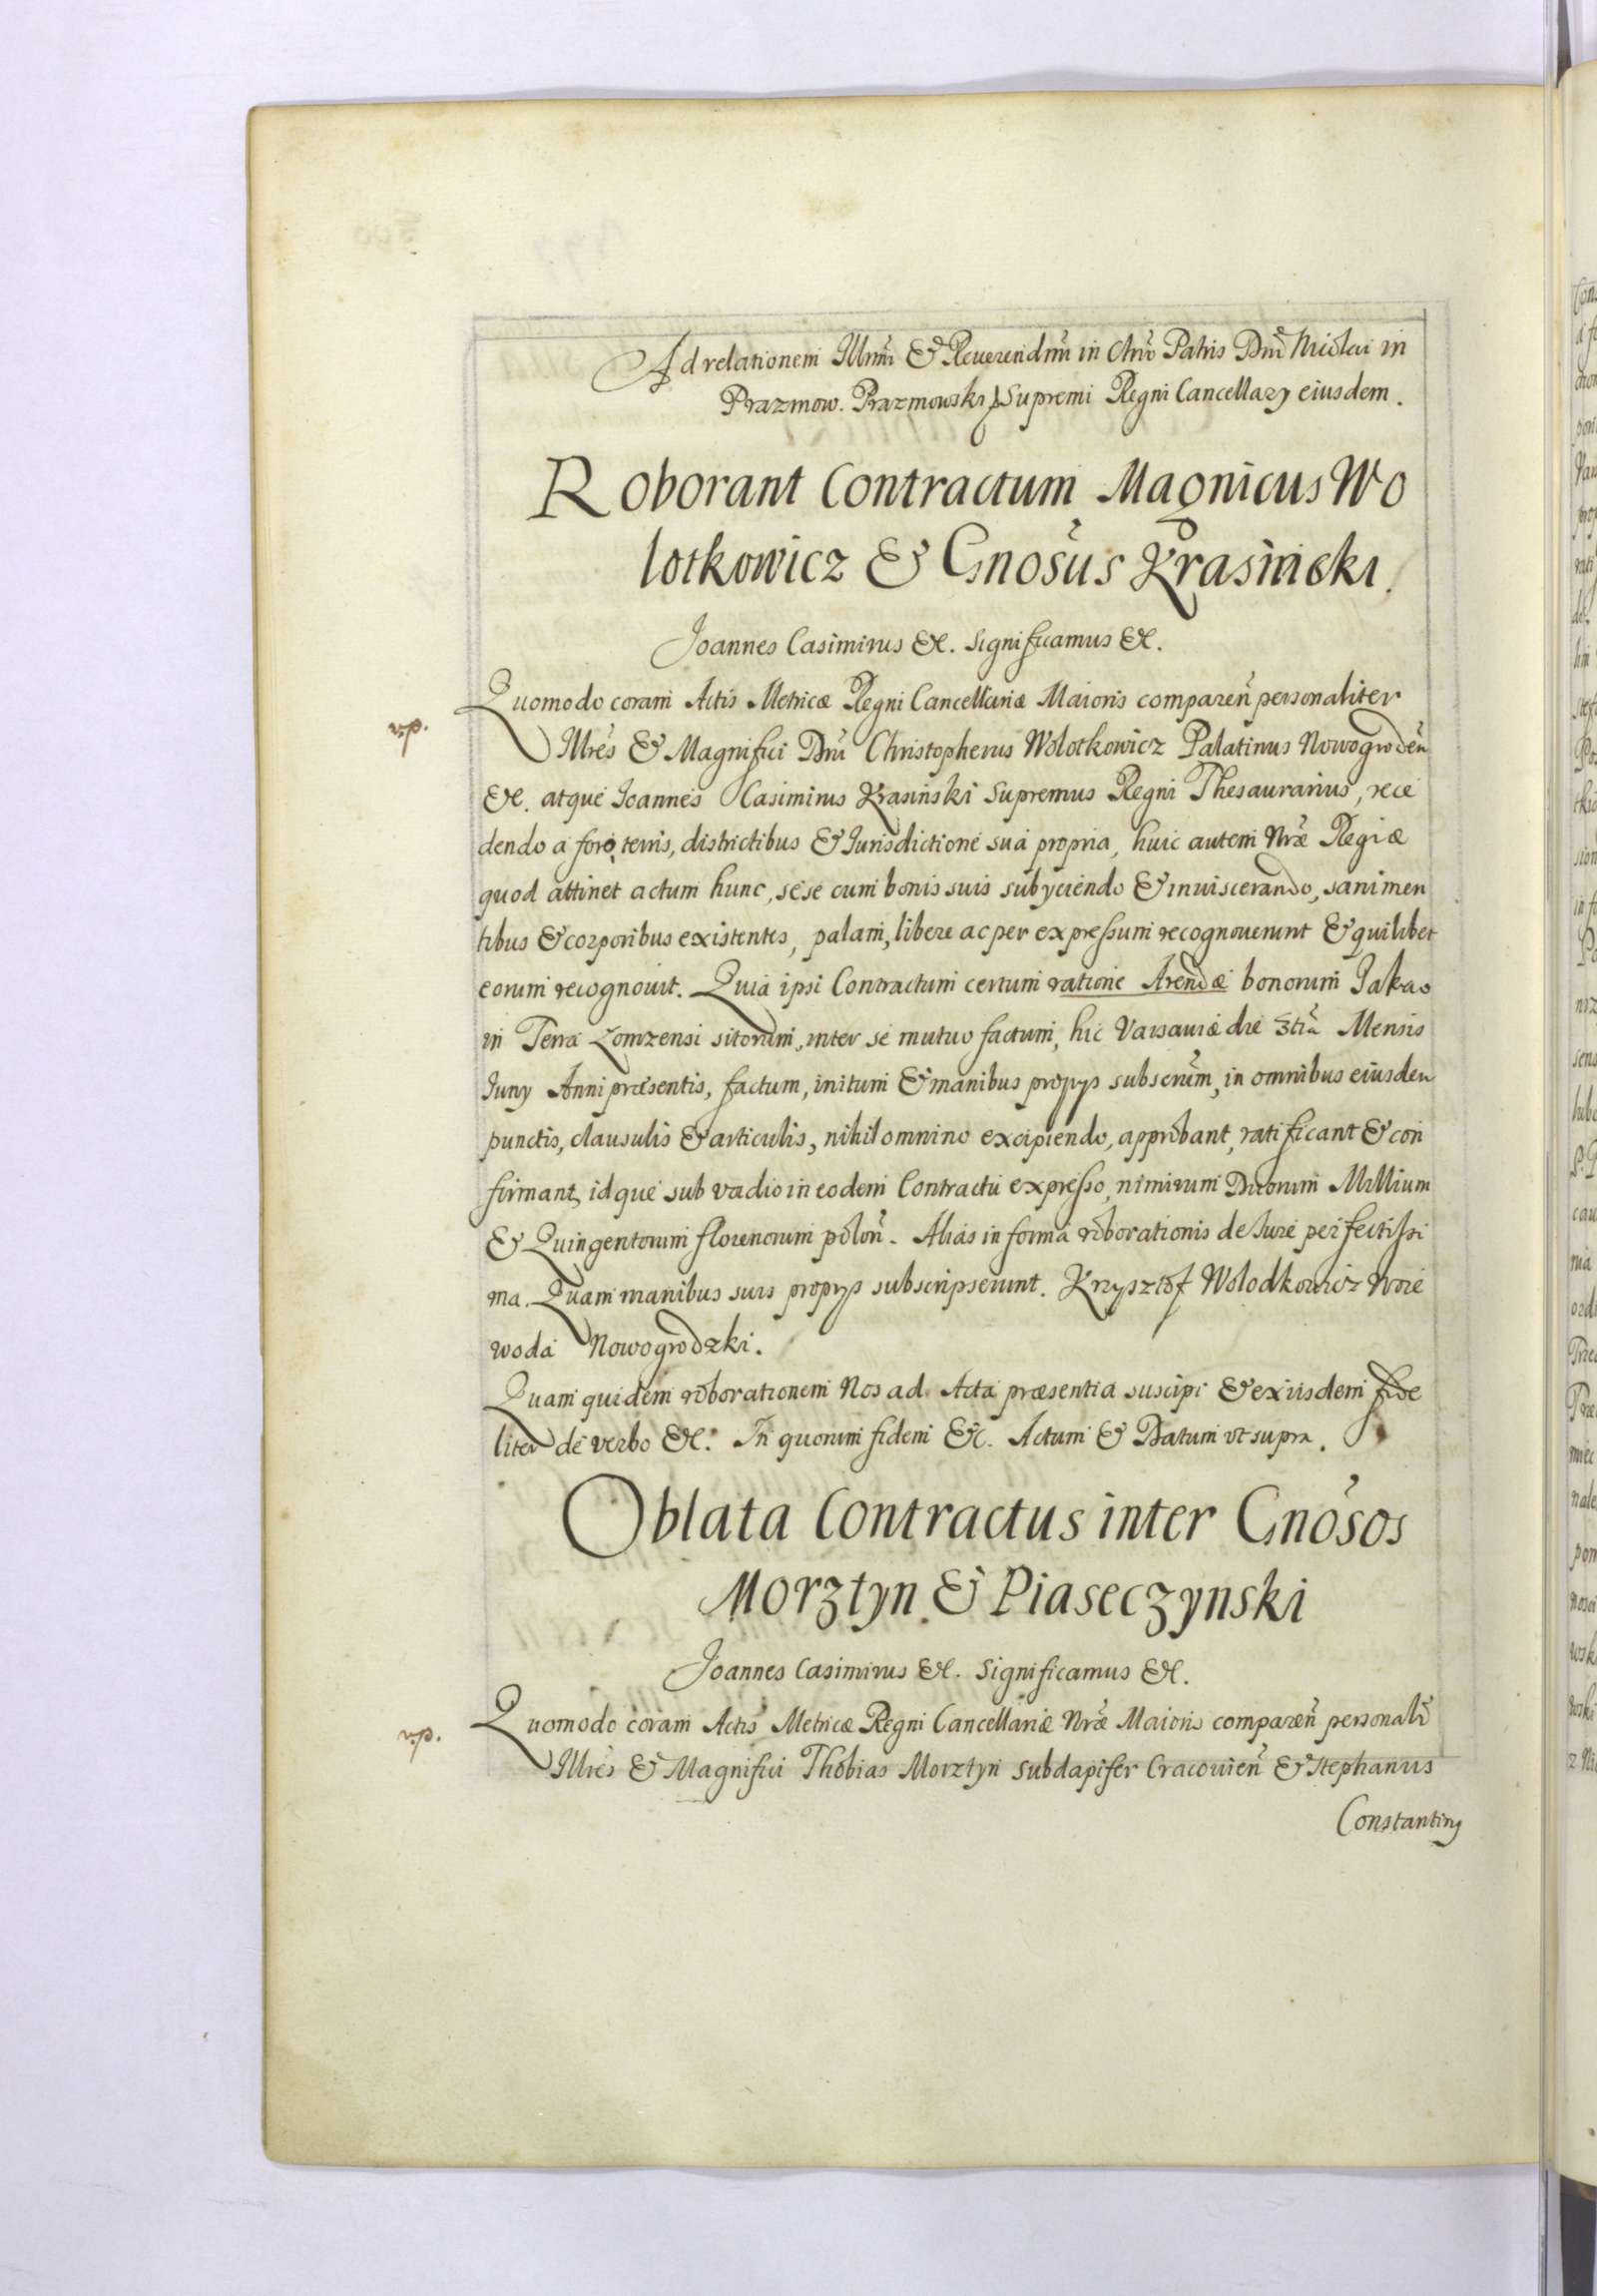 Ad relationem Illmi & Reuerendmi in Chro Patris Dni Nicolai in
Prazmow. Prazmowski Supremi Regni Cancellary eiusdem.
Roborant Contractum Magnicus Wo
lotkowicz & Gnosus Krasinski.
Joannes Casimirus &c. Significamus &c.
Quomodo coram Actis Metricæ Regni Cancellariæ Maioris comparen personaliter
v.p.
Illres & Magnifici Dni Christopherus Wolotkowicz Palatinus Nowogroden
&c. atque Joannes Casimirus Krasinski Supremus Regni Thesaurarius, rece
dendo a foro, terris, districtibus & Jurisdictione sua propria, huic autem Nræ Regiæ
quod attinet actum hunc, sese cum bonis suis subyciendo & inuiscerando, sani men
tibus & corporibus existentes, palam, libere ac per expressum recognouerunt & quilibet
eorum recognouit. Quia ipsi Contractum certum ratione Arendæ bonorum Jakac
in Terra Lomzensi sitorum, inter se mutuo factum, hic Varsauiæ die 3tia Mensis
Juny Anni præsentis, factum, initum & manibus propys subscrum, in omnibus eiusdem
punctis, clausulis & articulis, nihil omnino excipiendo, approbant, ratificant & con
firmant, idque sub vadio in eodem Contractu expresso, nimirum Duorum Millium
& Quingentorum florenorum polon. Alias in forma roborationis de Jure perfectissi
ma. Quam manibus suis propys subscripserunt. Krzysztof Wolodkowicz Woie
woda Nowogrodzki.
Quam quidem roborationem Nos ad Acta præsentia suscipi & ex iisdem fide
liter de verbo &c. In quorum fidem &c. Actum & Datum vt supra.
Oblata Contractus inter Gnosos
Morztyn & Piaseczynski
Joannes Casimirus &c. Significamus &c.
Quomodo coram Actis Metricæ Regni Cancellariæ Nræ Maioris comparen personalr
v.p.
Illres & Magnifici Thobias Morztyn Subdapifer Cracouien & Stephanus
Constantiny